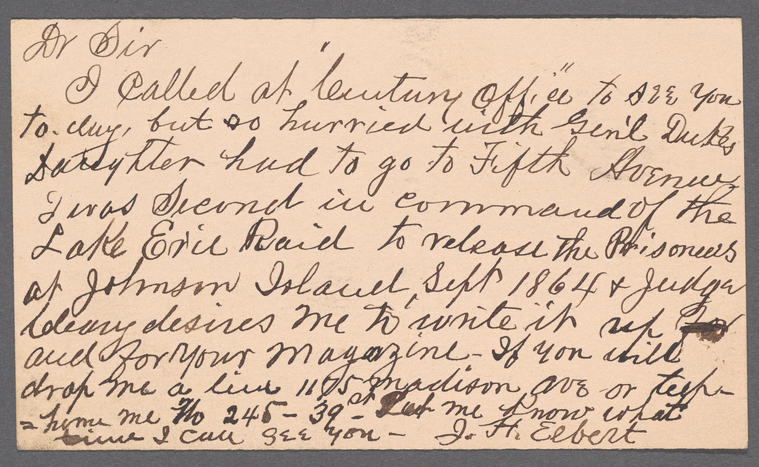 Dr Sir
I called at "Century Office" to see you
to-day, but so hurried with Gen'l Dukes
Daughter had to go to Fifth Avenue
I was Second in command of the
Lake Erie Raid to release the Prisoners
at Johnson Island, Sept 1864 & Judge
desires me to write it up
and for your Magazine - If you will
drop me a line 1175 Madison Ave or telep-
=hone me No 245 - 39 st - Let me know what
time I can see you - J. H. Elbert